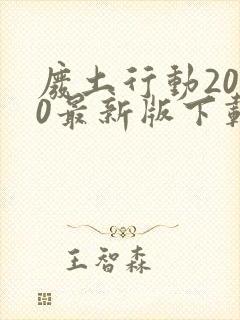 廢土行動20
0最新版下載
王智森